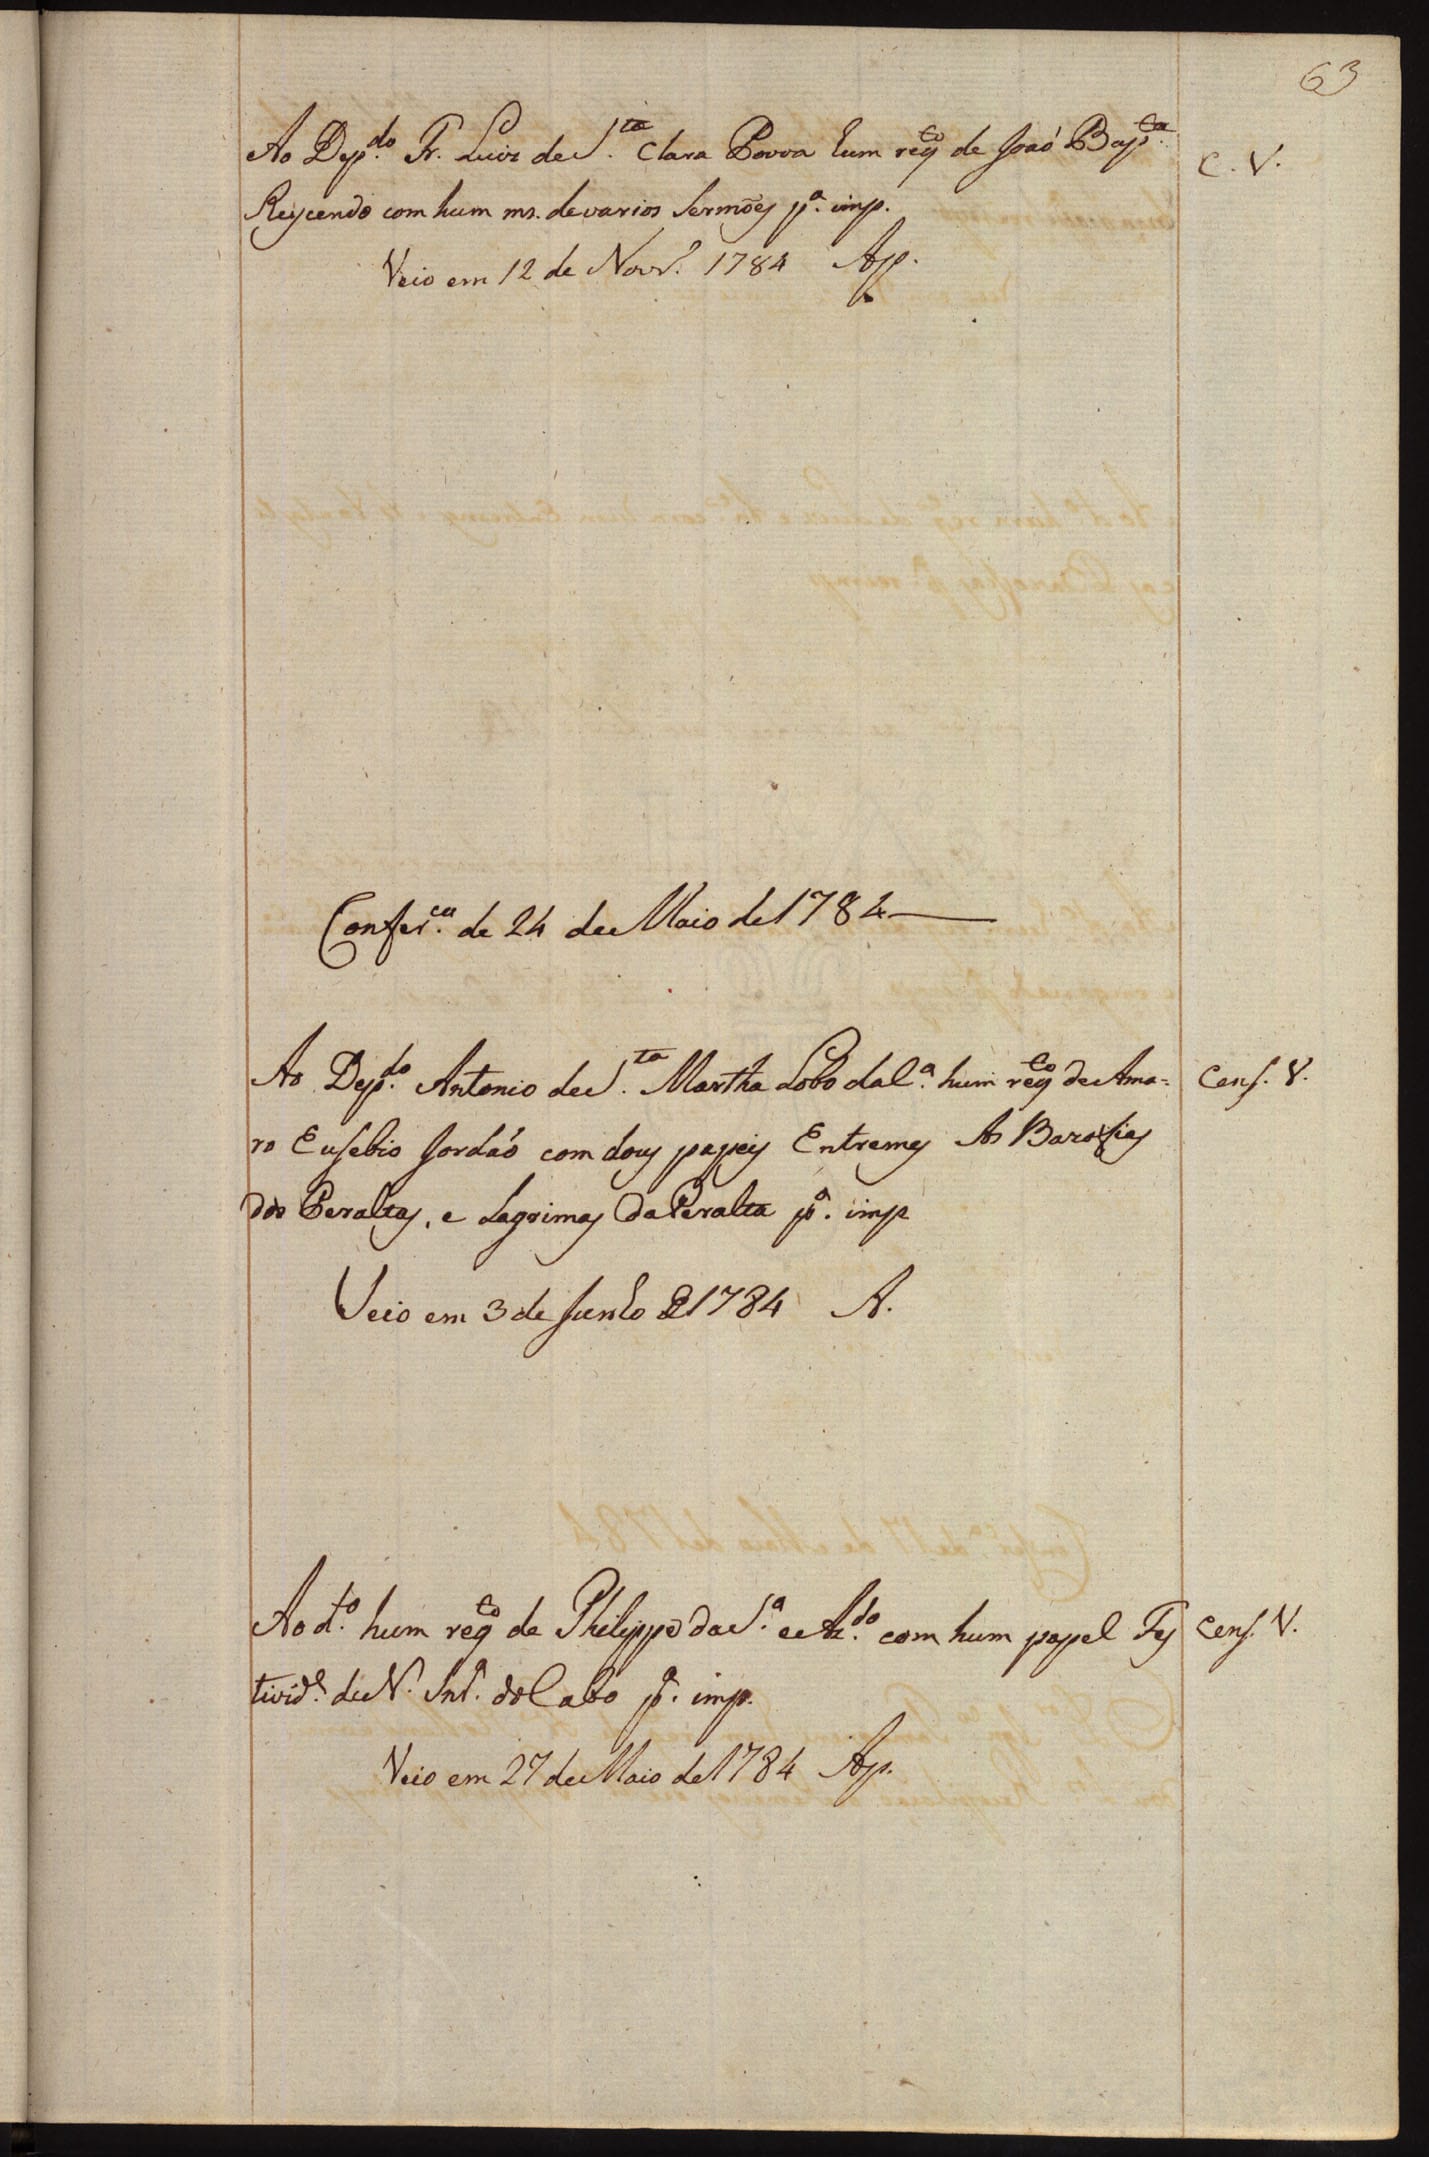 63
Ao Dep.do Fr. Luiz de S.ta Clara Povoa hum reqto de João Bapt.a
Reycendo com hum ms. de varios Sermões p.a imp.
C. V.
Veio em 12 de Novr.o 1784 Ap.
Confer.ca de 24 de Maio de 1784
Ao Dep.do Antonio de S.ta Martha Lobo da C.a hum reqto de Ama=
ro Eusebio Jordão com dous papeis Entremes As Barofias
dos Peraltas, e Lagrimas da Peralta p.a imp
Cens. V.
Veio em 3 de Junho de 1784 A.
Ao d.to hum reqto de Philippe da S.a e Az.do com hum papel Fes
tivid.e de N. Snr.a do Cabo p.a imp.
Cens. V.
Veio em 27 de Maio de 1784 Ap.